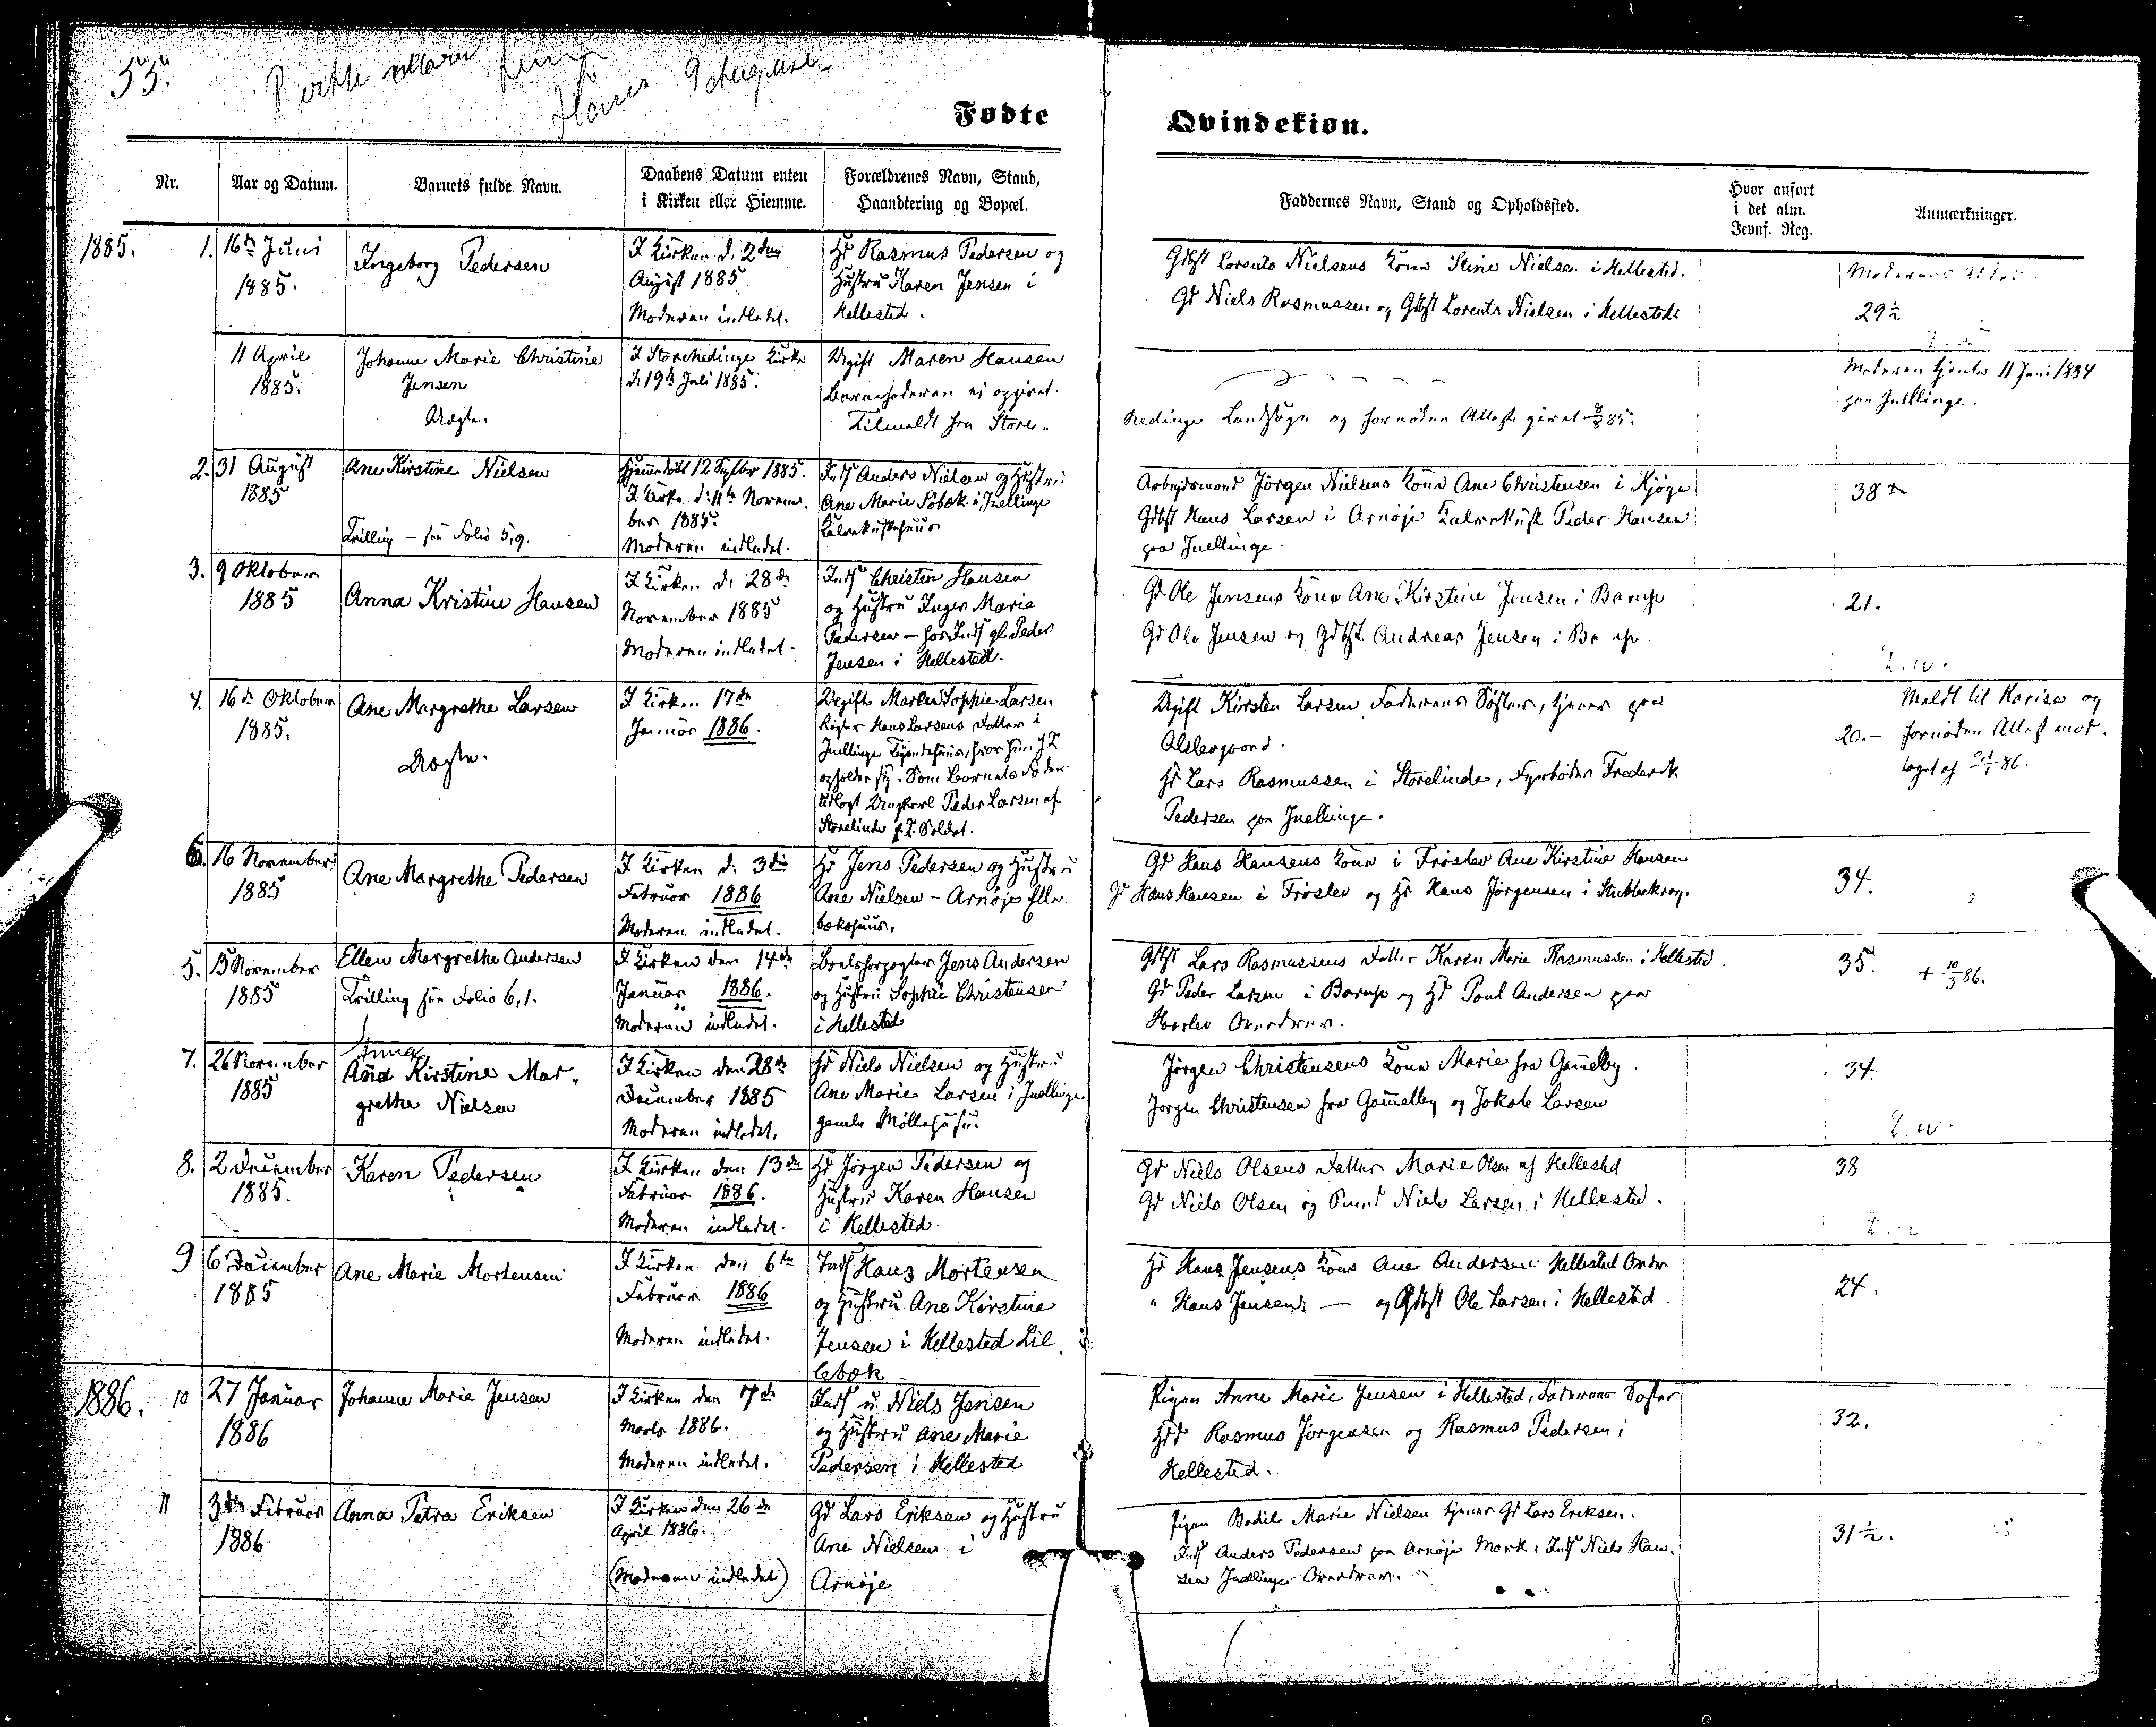 55.
Hans
Fødte
Qvindekiøn.
Nr.
Aar og Datum.
Barnets fulde Navn.
Daabens Datum enten
i Kirken eller Hiemme.
Forældrenes Navn, Stand,
Haandtering og Bopæl.
Faddernes Navn, Stand og Opholdssted.
Hvor anført
i det alm.
Jevnf. Reg.
Anmærkninger.
1885.
1.
16de Juni
1885.
Ingeborg Pedersen
I Kirken d. 2den
August 1885
Moderen indledet.
Hd Rasmus Pedersen og
Hustru Karen Jensen i
Hellested.
Gdbst Lorents Nielsens Kone Stine Nielsen i Hellested.
Gd Niels Rasmussen og Gdbst Lorents Nielsen i Hellested.
Moderens Alder
29½
11 April
1885.
Johanne Marie Christine
Jensen
Uægte.
I Storehedinge Kirke
d. 19de Juli 1885.
Ugift Maren Hansen
Barnefaderen ej opgivet.
Tilmeldt fra Store-
hedinge Landsogn og fornøden Attest givet 8/8 85.
Moderen tjente 11 Juni 1884
paa Juellinge.
2.
31 August
1885
Ane Kirstine Nielsen
Tvilling - see Folio 5,9.
Hjemmedøbt 12 Septbr 1885.
I Kirken d. 11te Novem-
ber 1885.
Moderen indledet.
Inds Anders Nielsen og Hustru
Ane Marie Søbæk i Juellinge
Arbejdsmand Jörgen Nielsens Kone Ane Christensen i Kjøge
Gdbst Hans Larsen i Arnøje Peder Hansen
paa Juellinge.
38
3.
9 Oktober
1885
Anna Kristine Hansen
I Kirken d. 28de
November 1885
Moderen indledet.
Inds Christen Hansen
og Hustru Inger Marie
Pedersen - hos Inds gl. Peder
Jensen i Hellested.
Gd Ole Jensens Kone Ane Kirstine Jensen i Barup
Gd Ole Jensen og Gdbst. Andreas Jensen i Barup.
21.
4.
16de Oktober
1885.
Ane Margrethe Larsen
Uægte.
I Kirken 17de
Januar 1886.
Ugift Maren Sophie Larsen
Røgter Hans Larsens Datter i
Juellinge hvor hun p.T.
opholder sig. Som Barnets Fader
udlagt Ungkarl Peder Larsen af
Storelinde p.T. Soldat.
Ugift Kirsten Larsen Faderens Søster, tjener paa
Alslevgaard.
Hd Lars Rasmussen i Storelinde, Fyrbøder Frederik
Pedersen paa Juellinge.
20.-
Meldt til Karise og
fornøden Attest mod-
taget af 21/1 86.
6.
16 November
1885
Ane Margrethe Pedersen
I Kirken d. 3die
Februar 1886
Moderen indledet.
Hd Jens Pedersen og Hustru
Ane Nielsen - Arnøje Elle-
bækshuus.
Gd Hans Hansens Kone i Frøslev Ane Kirstine Hansen
Gd Hans Hansen i Frøslev og Hd Hans Jørgensen i Stubbekrog.
34.
5.
15 November
1885
Ellen Margrethe Andersen
Tvilling see Folio 6,1.
I Kirken den 14de
Januar 1886.
Moderen indledet.
Boelsforpagter Jens Andersen
og Hustru Sophie Christensen
i Hellested
Gdbst Lars Rasmussens Datter Karen Marie Rasmussen i Hellested.
Gd Peder Larsen i Barup og Hd Poul Andersen paa
Haarlev Overdrev.
35.
+ 10/3 86.
7.
26 November
1885
Anna
Ana Kirstine Mar-
grethe Nielsen
I Kirken den 28de
December 1885
Moderen indledet.
Hd Niels Nielsen og Hustru
Ane Marie Larsen i Juellinge
gamle Møllehuse.
Jørgen Christensens Kone Marie fra Gammelby.
Jørgen Christensen fra Gammelby og Jakob Larsen
34.
8.
2 December
1885.
Karen Pedersen
I Kirken den 13de
Februar 1886.
Moderen indledet.
Hd Jørgen Pedersen og
Hustru Karen Hansen
i Hellested.
Gd Niels Olsens Datter Marie Olsen af Hellested
Gd Niels Olsen og Niels Larsen i Hellested.
38
9
6 December
1885
Ane Marie Mortensen
I Kirken den 6te
Februar 1886
Moderen indledet.
Inds Hans Mortensen
og Hustru Ane Kirstine
Jensen i Hellested Lil-
lebæk
Hd Hans Jensens Kone Ane Andersen Hellested Overdr
" Hans Jensen - og Gdbst Ole Larsen i Hellested.
24.
1886.
10
27 Januar
1886
Johanne Marie Jensen
I Kirken den 17de
Marts 1886.
Moderen indledet.
Inds Niels Jensen
og Hustru Ane Marie
Pedersen i Hellested
Pigen Anne Marie Jensen i Hellested, Faderens Søster
Hdd Rasmus Jørgensen og Rasmus Pedersen i
Hellested.
32.
11
3die Februar
1886
Anna Petra Eriksen
I Kirken den 26de
April 1886.
(Moderen indledet)
Gd Lars Eriksen og Hustru
Ane Nielsen i
Arnøje
Pigen Bodil Marie Nielsen tjener Gd Lars Eriksen.
Inds Anders Pedersen paa Arnøje Mark, Inds Niels Han-
sen Juellinge Overdrev.
31½.